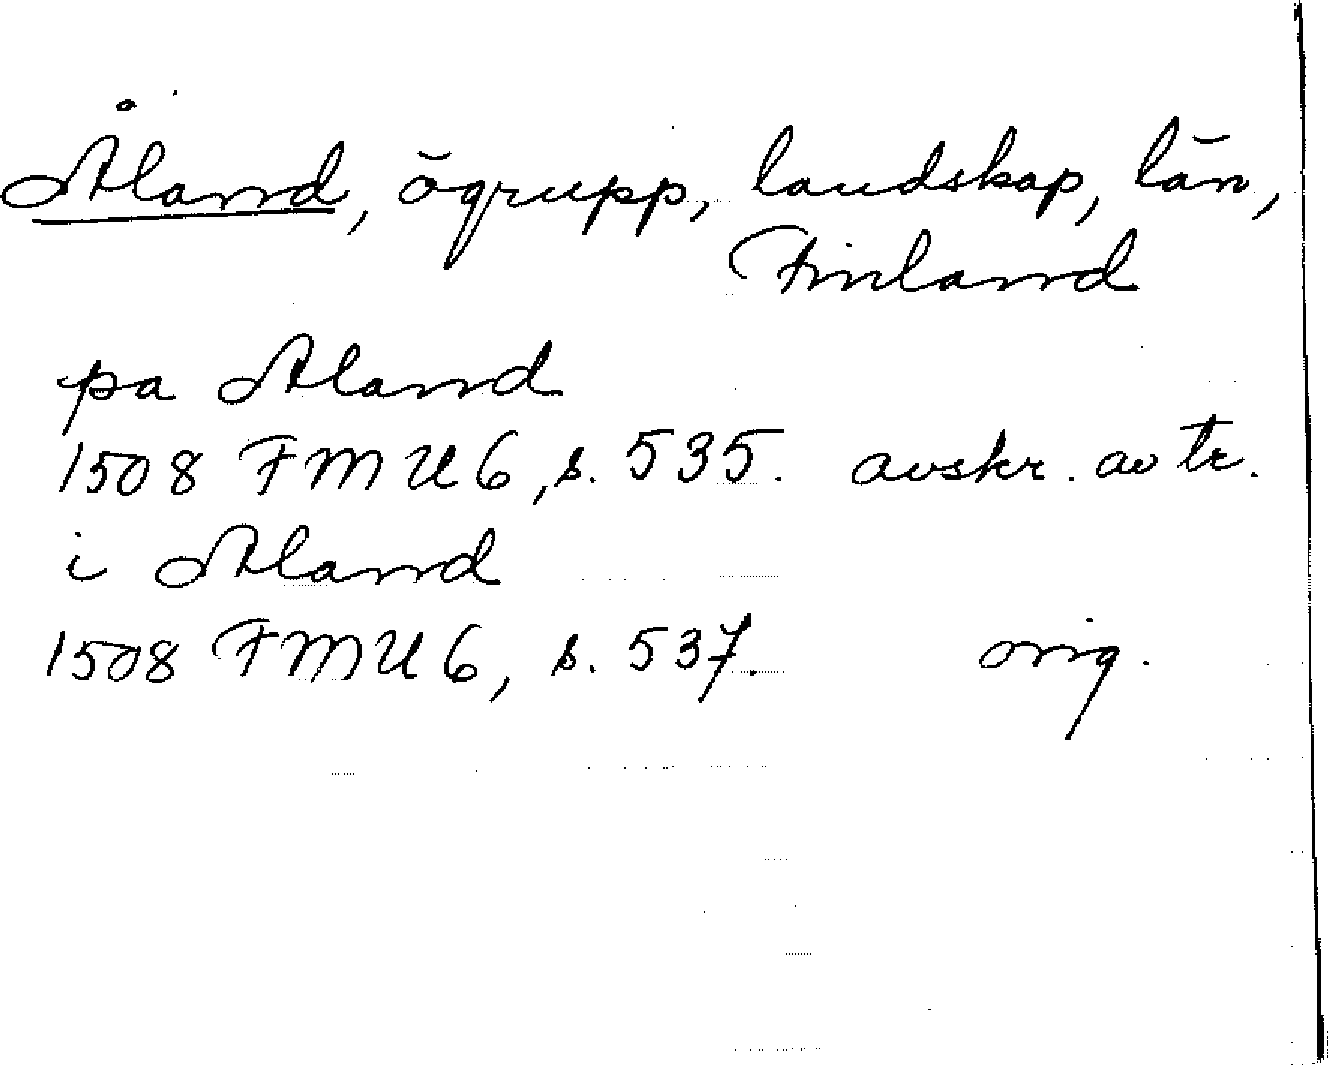 Åland, ögrupp, landskap, län,
Finland
pa Aland
1508 FMU 6, s. 535. avskr. av tr.
i Aland
1508 FMU 6, s. 537. orig.